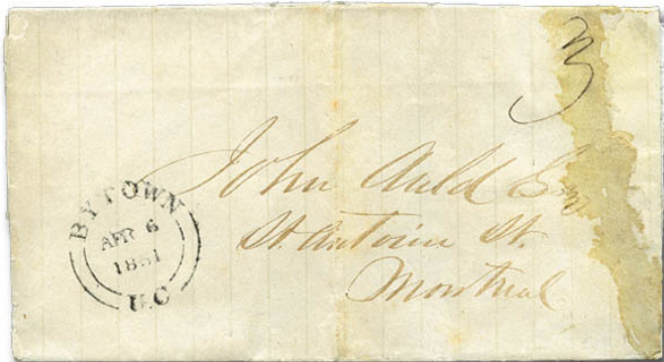 3
John Auld Esq
St. Antoine St.
Montreal
BYTOWN
APR 6
1851
U.C